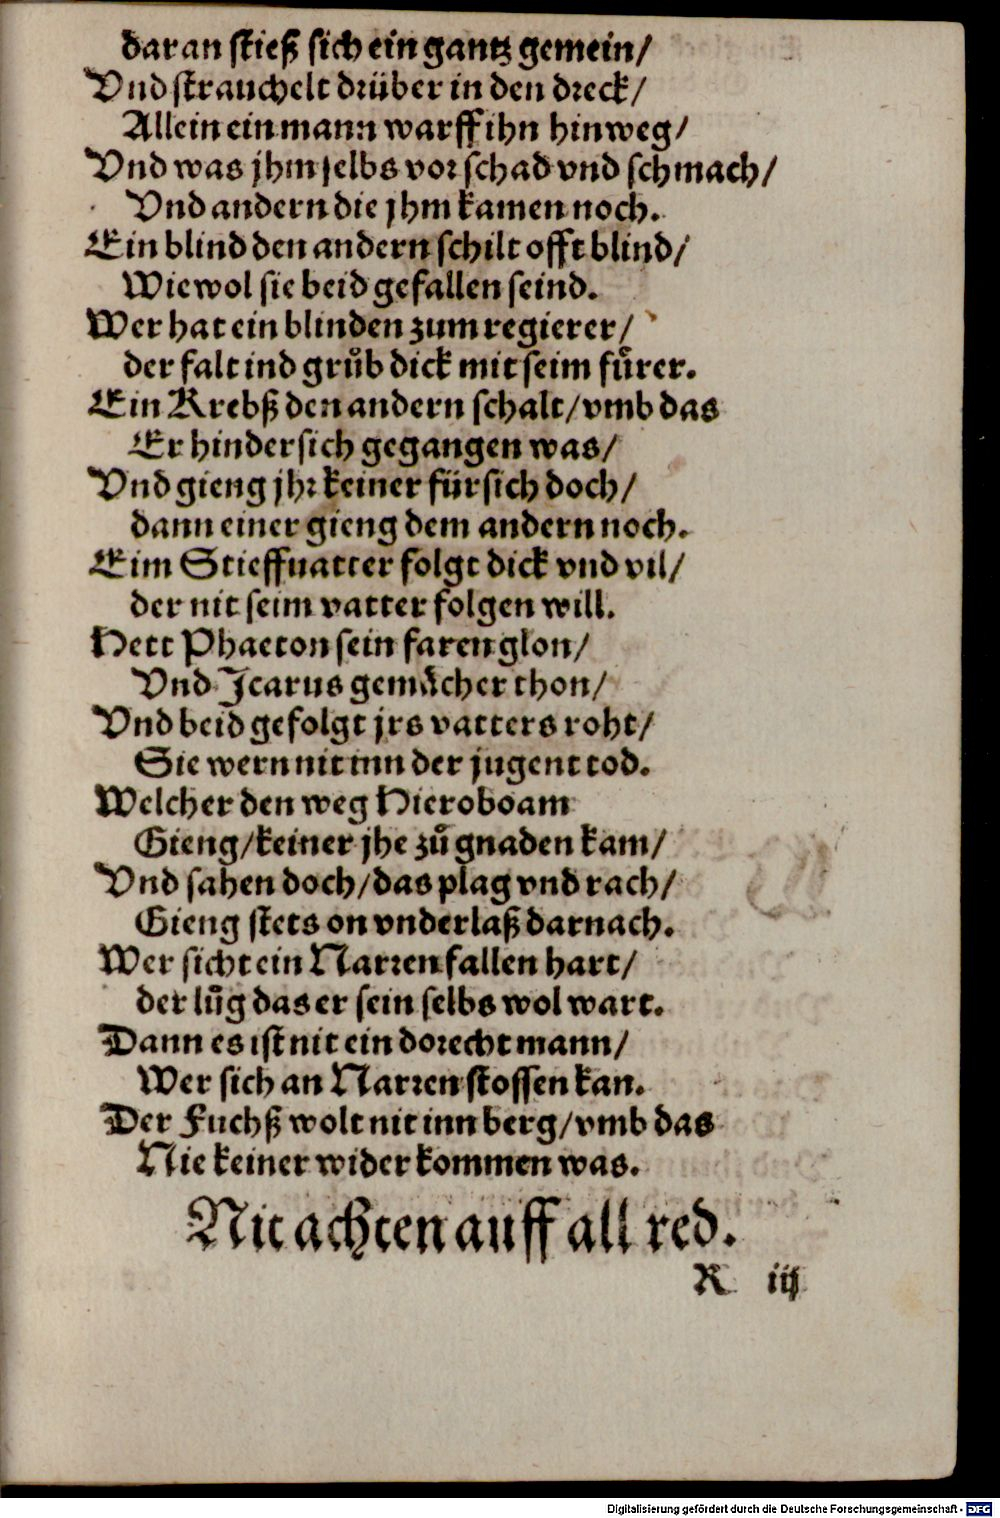 daran stieß sich ein gantz gemein/
Vnd strauchelt drüber in den dreck/
Allein ein mann warff ihn hinweg/
Vnd was jhm selbs vor schad vnd schmach/
Vnd andern die jhm kamen noch.
Ein blind den andern schilt offt blind/
Wiewol sie beid gefallen seind.
Wer hat ein blinden zum regierer/
der falt ind gruͦb dick mit seim fuͤrer.
Ein Krebß den andern schalt/vmb das
Er hindersich gegangen was/
Vnd gieng jhr keiner fürsich doch/
dann einer gieng dem andern noch.
Eim Stieffuatter folgt dick vnd vil/
der nit seim vatter folgen will.
Hett Phaeton sein faren glon/
Vnd Icarus gemaͤcher thon/
Vnd beid gefolgt jrs vatters roht/
Sie wern nit inn der jugent tod.
Welcher den weg Hieroboam
Gieng/keiner jhe zuͦ gnaden kam/
Vnd sahen doch/das plag vnd rach/
Gieng stets on vnderlaß darnach.
Wer sicht ein Narren fallen hart/
der luͦg das er sein selbs wol wart.
Dann es ist nit ein dorecht mann/
Wer sich an Narren stossen kan.
Der Fuchß wolt nit inn berg/vmb das
Nie keiner wider kommen was.
Nit achten auff all red.
R iij
Digitalisierung gefördert durch die Deutsche Forschungsgemeinschaft - DFG